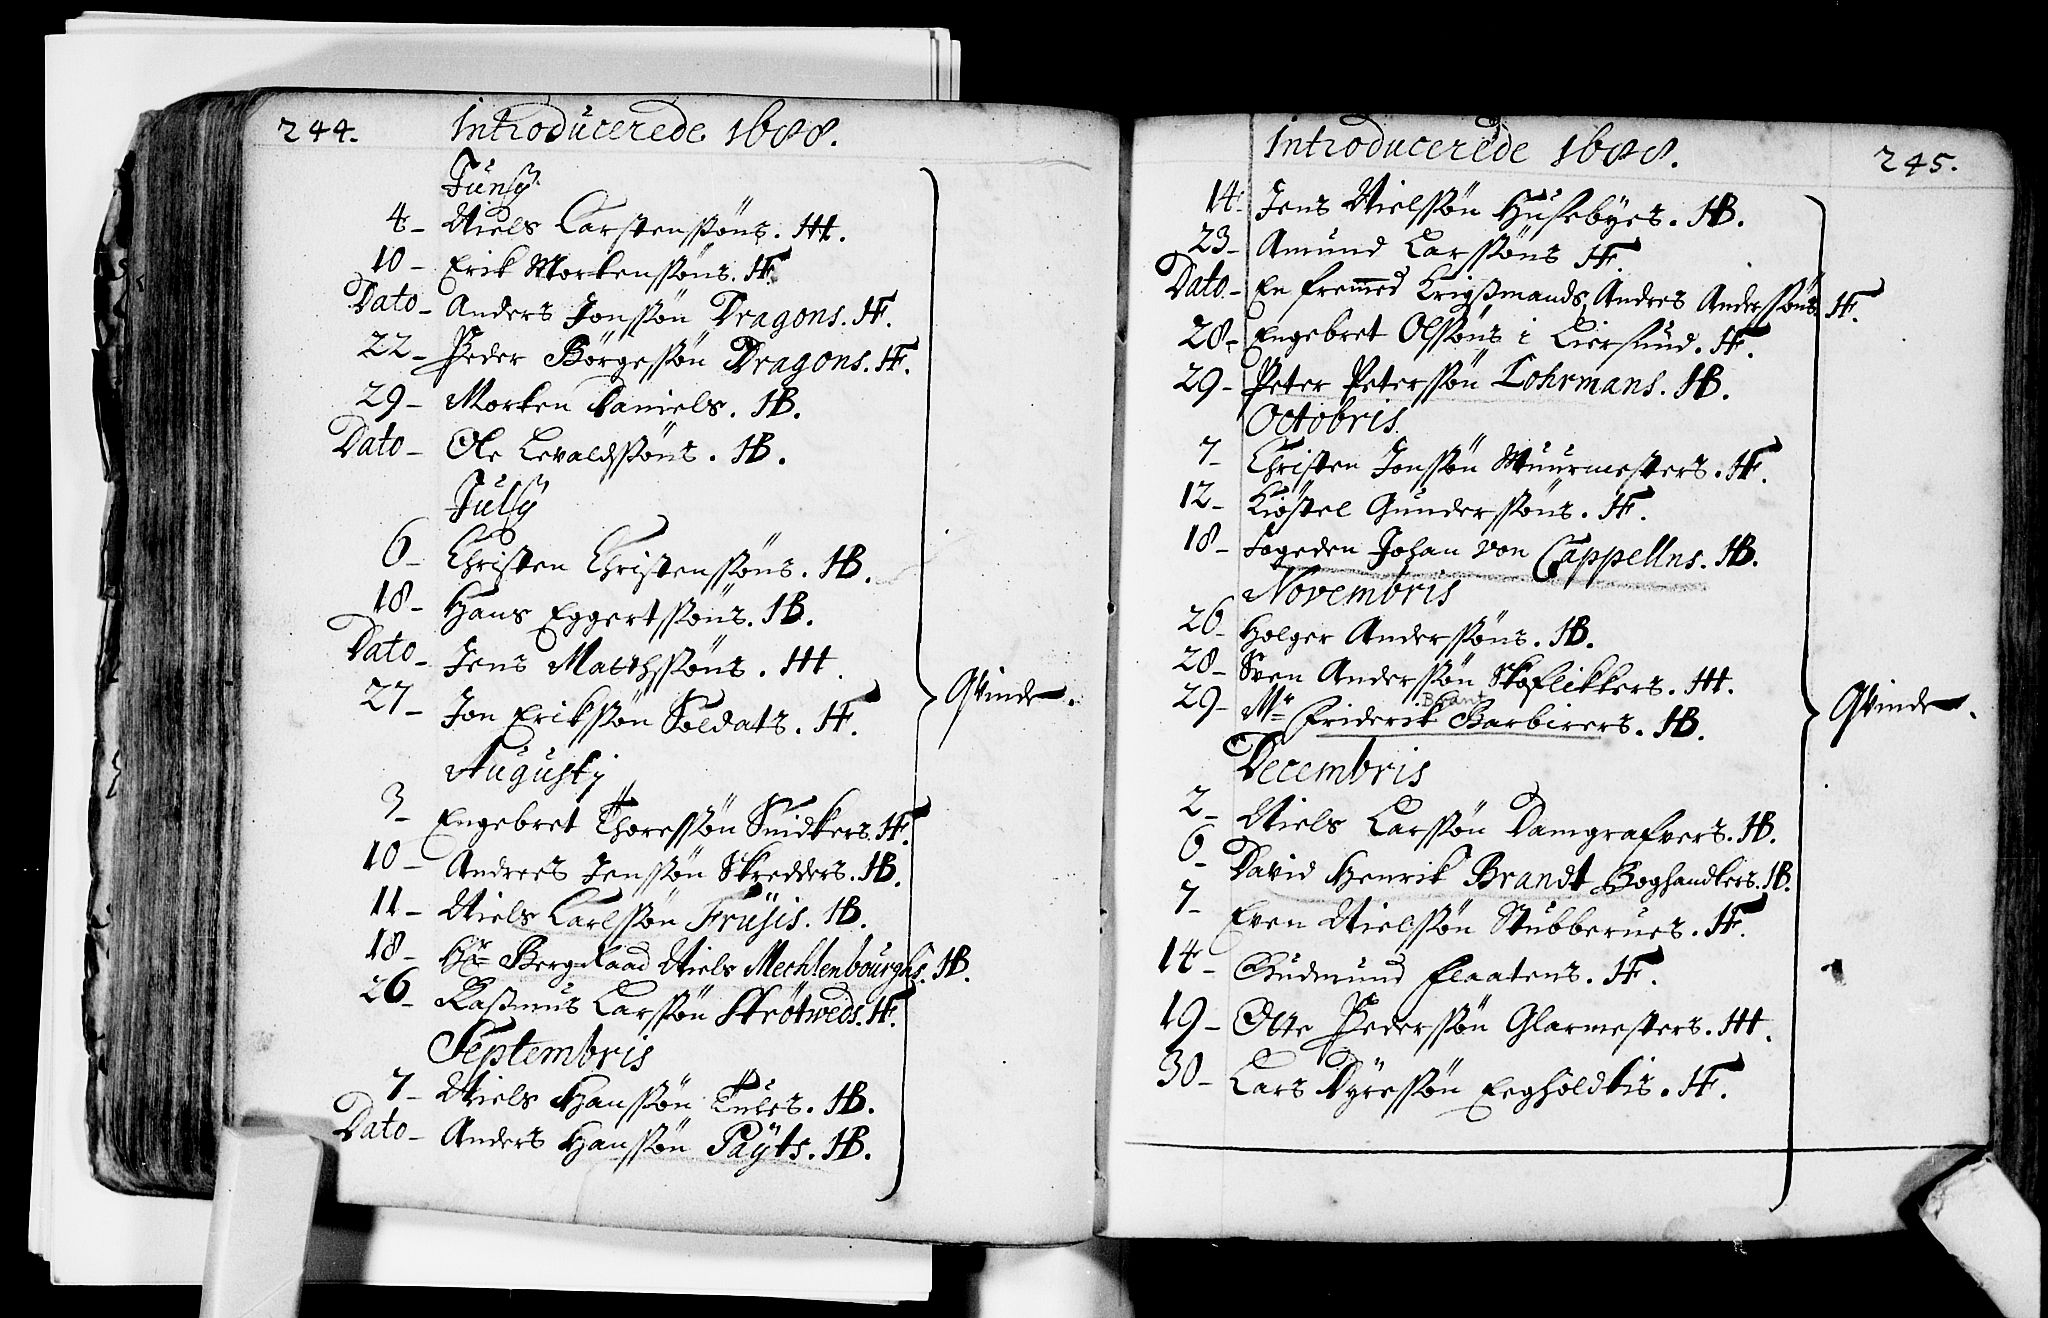 244. Introducerede 1688.
Junij
4 - Niels Carstensøns. HH.
10 - Erik Mortensøns. HF.
Dato - Anders Jonsøn Dragons. HF.
22 - Peder Börgessøn Dragons. HF.
29 - Morten Daniels. HB.
Dato - Ole Levaldssøns. HB.
Julij
6 - Christen Christenssøns. HB.
18 - Hans Eggertssøns. HB.
Dato - Jens Matthssøns. HH.
27 - Jon Erikssøn Soldats. HF.
Qvinde.
Augustj
3 - Engebret Thoressøn Snidkers. HF.
10 - Andres Jenssøn Skredders. HB.
11 - Niels Carlssøn Früjis. HB.
18 - Hr Bergraad Niels Mechlenbourghs. HB.
26 - Rasmus Larssøn Strötweds. HF.
Septembris
7 - Niels Hanssøn Tules. HB.
Dato - Anders Hanssøn Päyts. HB.
Introducerede 1688. 245.
14 - Jens Nielssøn Husebyes. HB.
23 - Amund Larssøns HF.
Dato - En fremmed Krigsmands Andres Anderssøns HF.
28 - Engebret Olssøns i Liersund. HF.
29 - Peter Peterssøn Lohrmans. HB.
Octobris
7 - Christen Jonssøn Muurmesters. HF.
12 - Kiöstel Gunderssøns. HF.
18 - Fogeden Johan von Cappellns. HB.
Novembris
26 - Holger Anderssøns. HB.
28 - Sven Anderssøn Skoflikkers. HH.
Brant
29 - Mr Friderik Barbirers. HB.
Qvinde.
Decembris
2 - Niels Larssøn Damgrafvers. HB.
6 - David Henrik Brandt Boghandlers. HB.
7 - Even Nielssøn Stubberues. HF.
14 - Gudmund Flaatens. HF.
19 - Otte Pederssøn Glarmesters. HH.
30 - Lars Dyressøn Eegholdtis. HF.